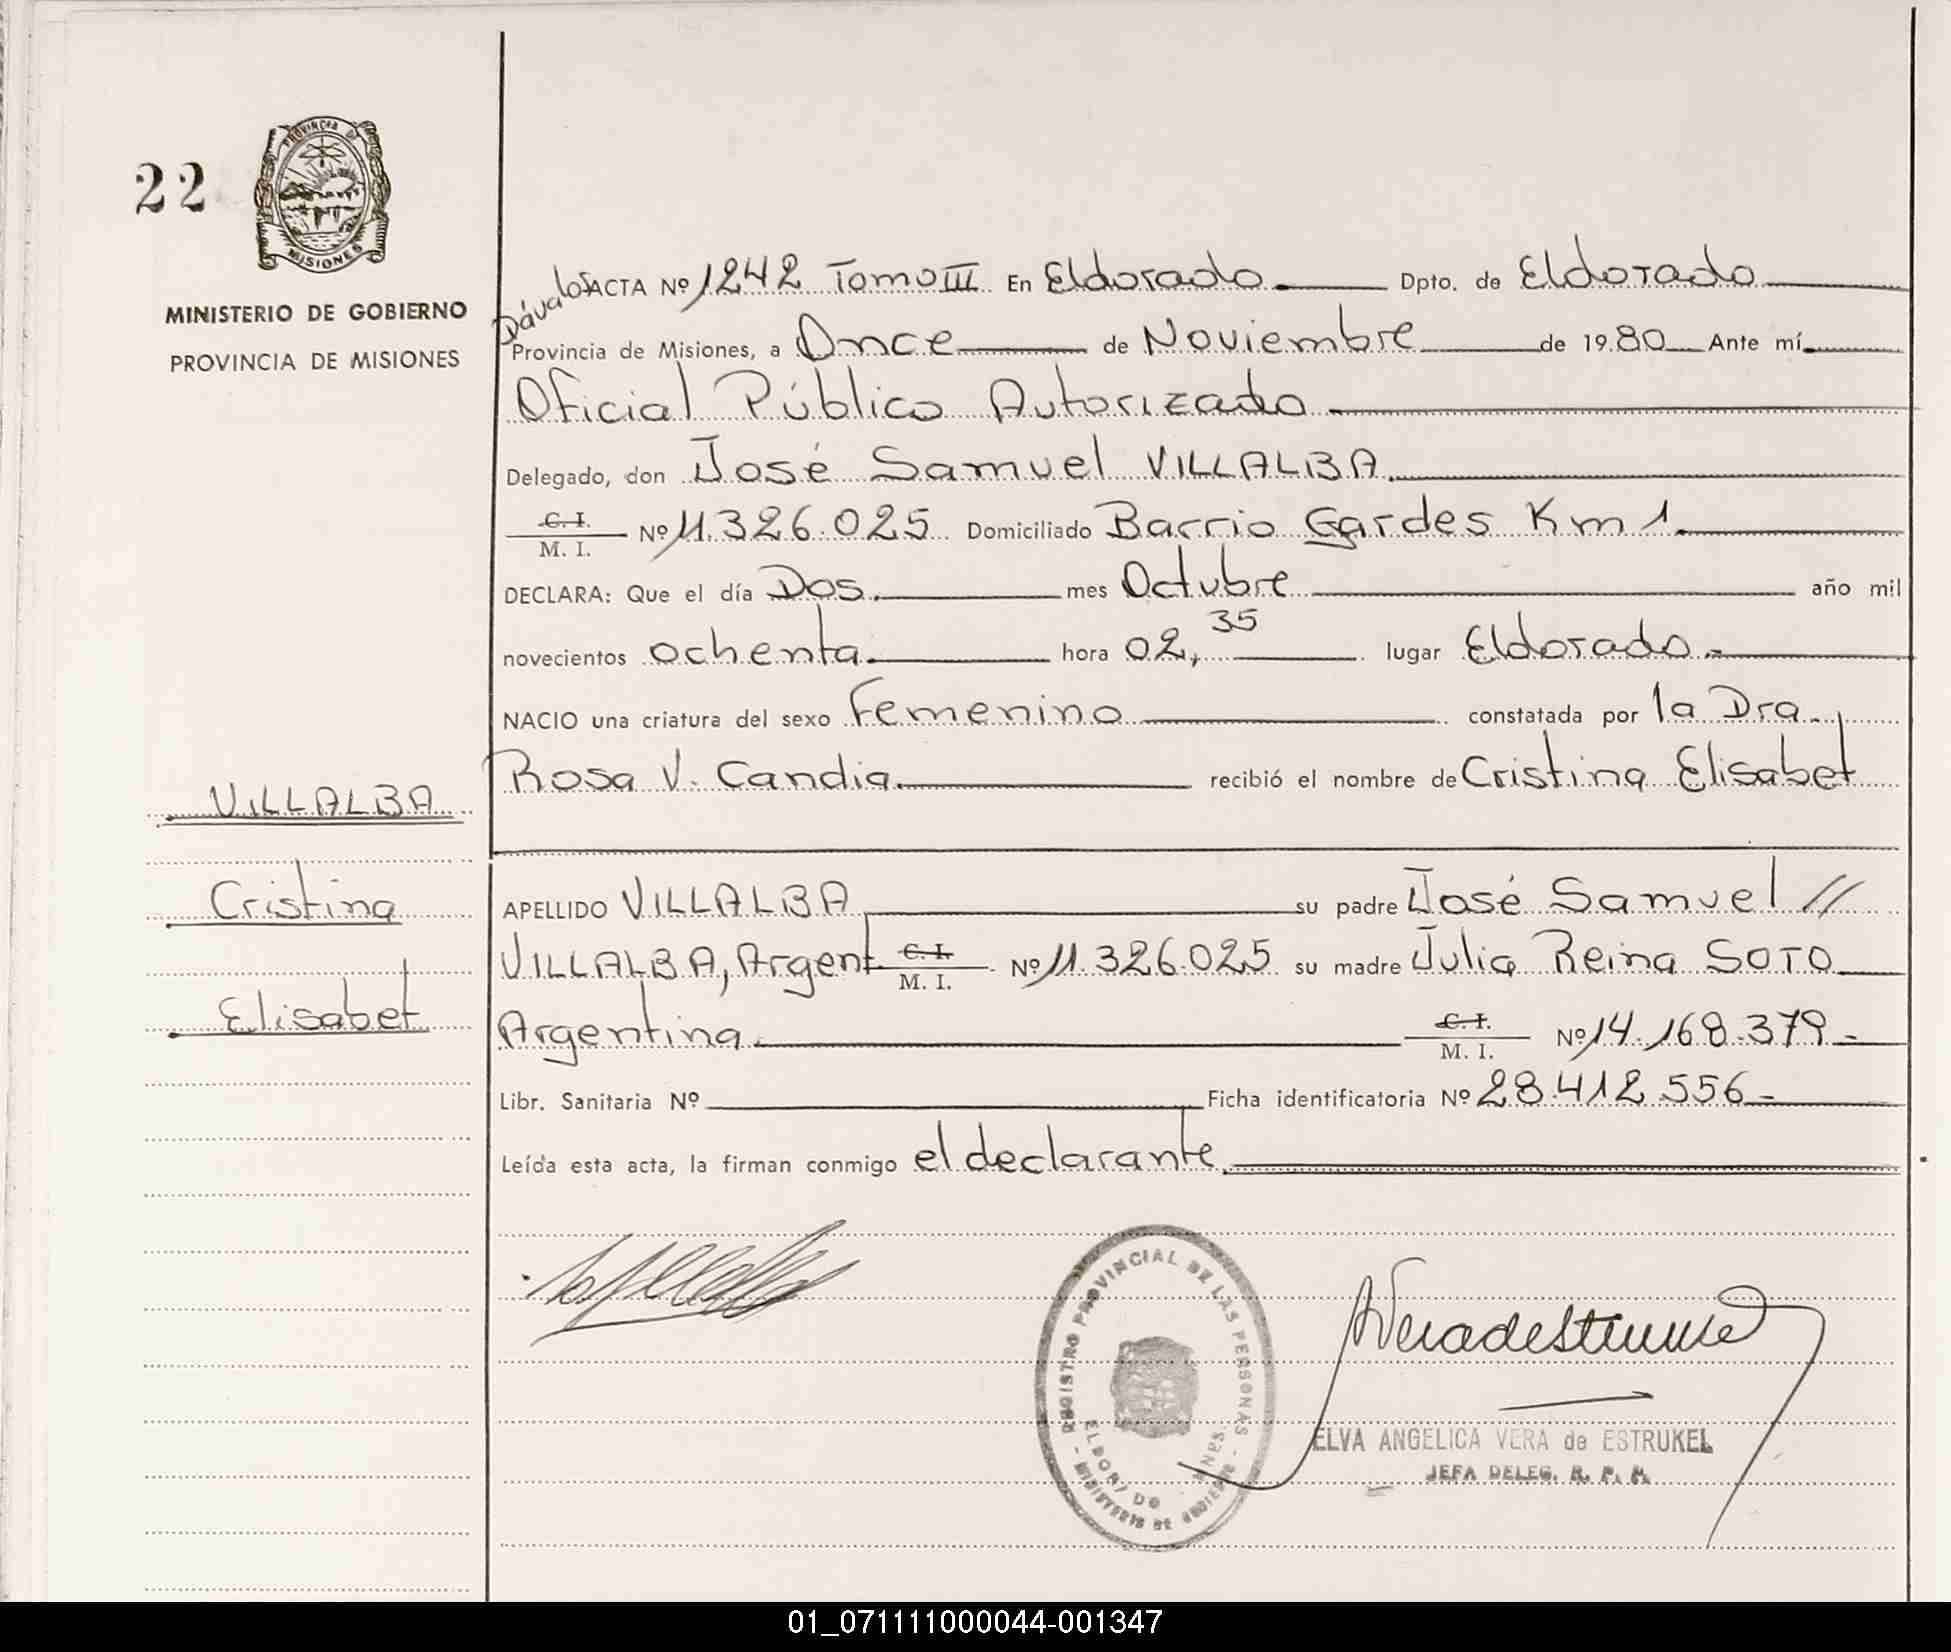 22
PROVINCIA DE
MISIONES
MINISTERIO DE GOBIERNO
PROVINCIA DE MISIONES
VILLALBA
Cristina
Elisabet
Dávalos
ACTA Nº 1242 Tomo III En Eldorado Dpto. de Eldorado
Provincia de Misiones, a Once de Noviembre de 1980 Ante mí
Oficial Público Autorizado
Delegado, don José Samuel VILLALBA
C. I. M. I. Nº 11.326.025 Domiciliado Barrio Gardes Km 1.
DECLARA: Que el día Dos. mes Octubre año mil
novecientos ochenta hora 02,35 lugar Eldorado.-
NACIO una criatura del sexo Femenino constatada por la Dra.
Rosa V. Candia recibió el nombre de Cristina Elisabet
APELLIDO VILLALBA su padre José Samuel //
VILLALBA, Argent. C. I. M. I. Nº 11.326.025 su madre Julia Reina SOTO
Argentina. C. I. M. I. Nº 14.168.379-
Libr. Sanitaria Nº Ficha identificatoria Nº 28.412.556-
Leída esta acta, la firman conmigo el declarante
REGISTRO PROVINCIAL DE LAS PERSONAS - MINISTERIO DE GOBIERNO -
ELVA ANGELICA VERA de ESTRUKEL
JEFA DELEG. R. P. P.
01_071111000044-001347